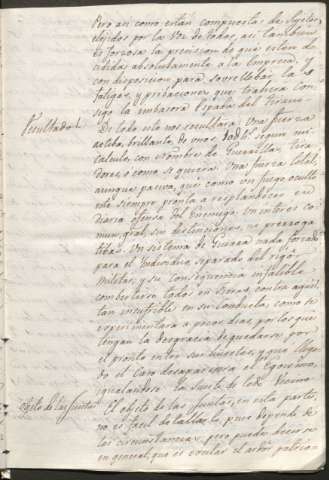 Pero asi como están compuestas de sujetos
elejidos por la voz de todos, asi tambien
es forzosa la precision de que esten de-
cididas absolutamente a la empresa, y
con disposicion para sobrellebar las
fatigas, y privaciones que trahera con-
sigo la imbasora Espada del Tirano
Resultado
De todo esto nos resultará: Una fuerza
activa, brillante, de unos segun mi
calculo, con nombre de Guerrilla, tira-
dores, ó como se quiera. Una fuerza total,
aunque pasiva, que como un fuego oculto
esté siempre pronta a resplandecer en
diaria ofensa del enemigo. Un interes co-
mun, gral, sin distinciones, ni prerroga-
tibas. Un sistema de Guerra nada forzado
para el Individuo separado del rigor
militar, y su consequencia infalible
combertirse todos en fieras contra aquel,
tan insufrible en su conducta, como lo
experimentará a pocos dias, por los que
tengan la desgracia de quedarse, por
el pronto entre sus huestes, y que llega-
do el caso desaparezca el Egoismo,
igualandose la suerte de todos.
Objeto de las Juntas
El objeto de las Juntas, en esta parte,
no es facil detallarlo, pues depende de
las circunstancias, pero puede decirse
en general, que es evitar el